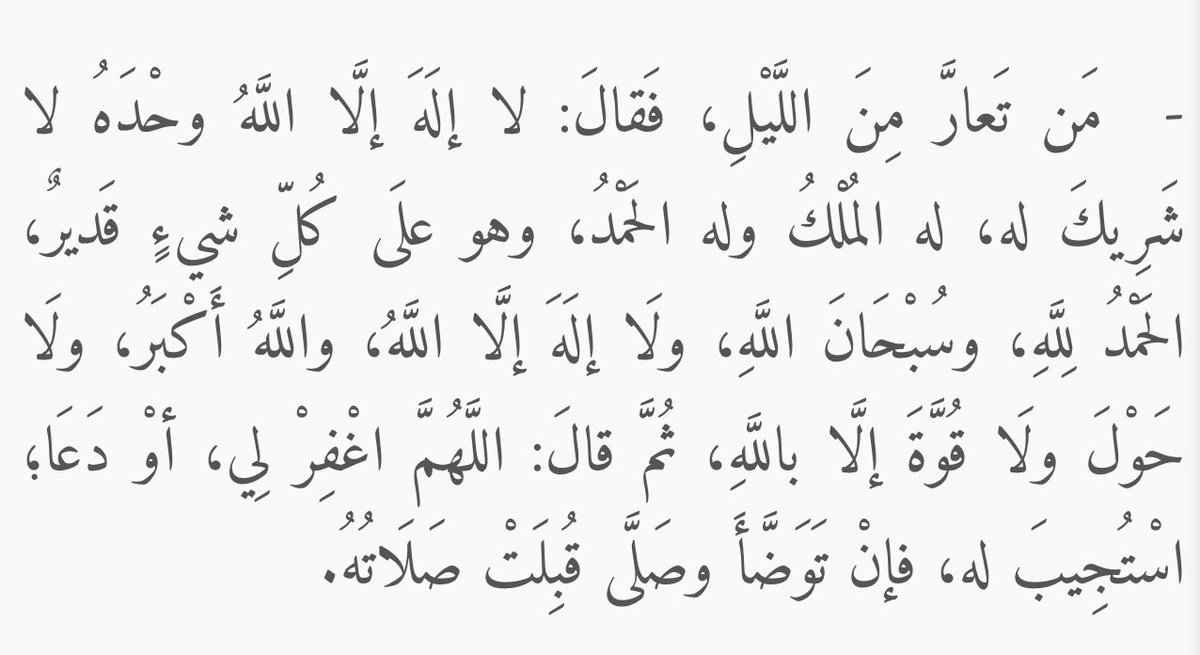 - مَن تَعارَّ مِنَ اللَّيْلِ، فَقالَ: لا إلَهَ إلَّا اللَّهُ وحْدَهُ لا
شَرِيكَ له، له المُلْكُ وله الحَمْدُ، وهو علَى كُلِّ شيءٍ قَديرٌ،
الحَمْدُ لِلَّهِ، وسُبْحَانَ اللَّهِ، ولَا إلَهَ إلَّا اللَّهُ، واللَّهُ أَكْبَرُ، ولَا
حَوْلَ ولَا قُوَّةَ إلَّا باللَّهِ، ثُمَّ قالَ: اللَّهُمَّ اغْفِرْ لِي، أوْ دَعَا؛
اسْتُجِيبَ له، فإنْ تَوَضَّأَ وصَلَّى قُبِلَتْ صَلَاتُهُ.